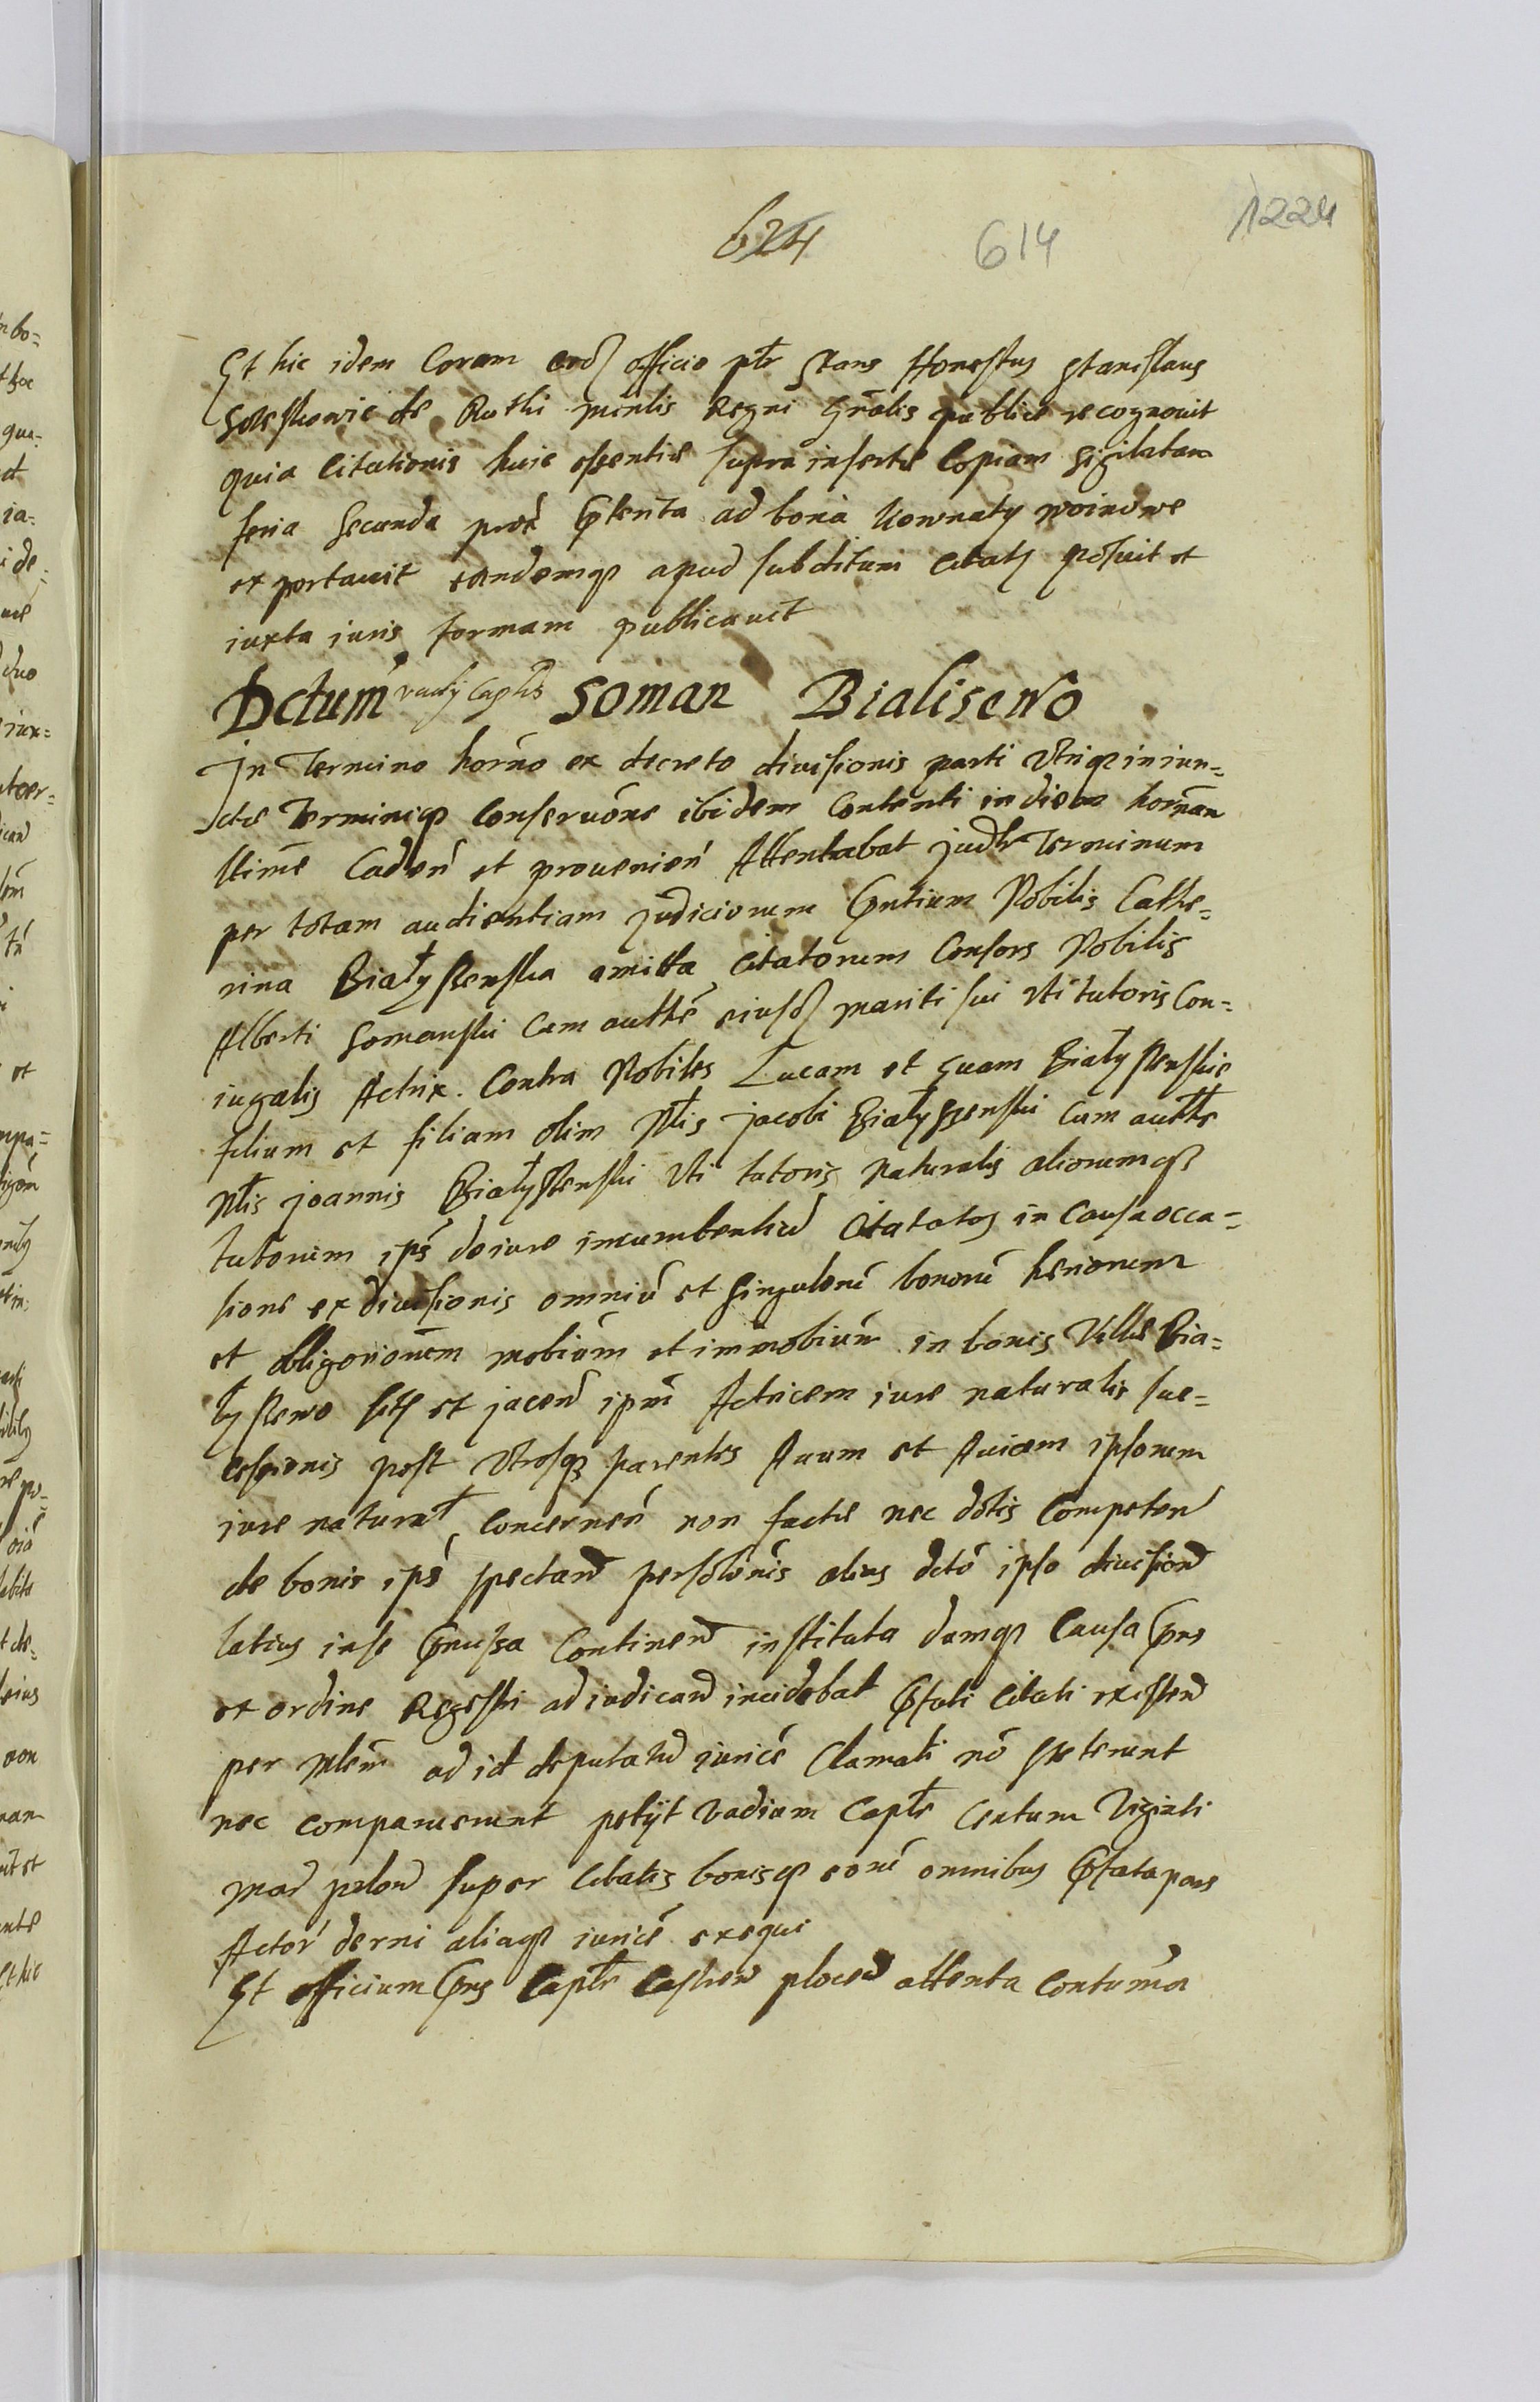 624 614 1224
Et hic idem Coram eod officio ptr Stans Honestus Stanislaus
de Rutki mintlis Regni Gnalis publice recognovit
quia Citationis huic offentie supra inserte Copiam sigilatam
feria Secunda prox ad bona Kownaty woinowe
exportavit eandemq apud subditum Citatj posuit et
iuxta iuris formam publicavit
Dctum vady Captlis Soman Bialisewo
In Termino horno ex decreto divisionis parti Utriq iniun=
cte Terminiq Conservone ibidem Contenti in diem hornam
ltime Caden et provenien Attentabat judr Terminum
per totam audientiam judiciorum pntium Nobilis Cathe=
rina Białyszewska amitta Citatorum Consors Nobilis
Alberti Somanski Cum authe eiusd mariti sui Uti tutoris Con=
iugalis Actrix. Contra Nobiles Lucam et Evam Białyszewskie
filium et filiam olim Nlis Jacobi Białyszewski Cum authte
Nlis Joannis Białyszewski Uti tutoris Naturalis aliorumq
tutorum ips de iure incumbentiu Citatos in Causa occa=
sione exdivisionis omniu et Singuloru bonoru
et obligoriorum mobium et immobium in bonis Ville Bia=
łyszewo sitj et jacen ipm Actricem iure naturalis suc=
cessionis post Utrosq parentes Avum et Aviam ipsorum
iure naturał concernen non facte nec dotis Competen
de bonis ips spectan persolonis alius dcto ipso division
latius in se Continen instituta dumq Causa pns
ex ordine Regestri ad iudicand incidebat Citati existen
per Mlem ad id deputatu iurice Clamati no steterunt
nec comparuerunt petijt Vadium Captle Centum Viginti
mar polon super Citatis bonisq eoru omnibus pars
Actor derni aliaq iurice exequi
Et officium pns Captle Castren plocen attenta Contuma